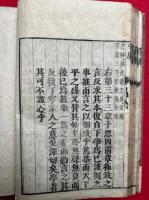 右第三十三章子思因前章極致之
言反求其本復自下學為己謹獨之
事推而言之以馴致乎篤恭而天下
平之盛又贊其妙至於無聲無臭而
後已焉蓋舉一篇之要而約言之其
反復丁寧示人之意至深切矣學者
其可不盡心乎